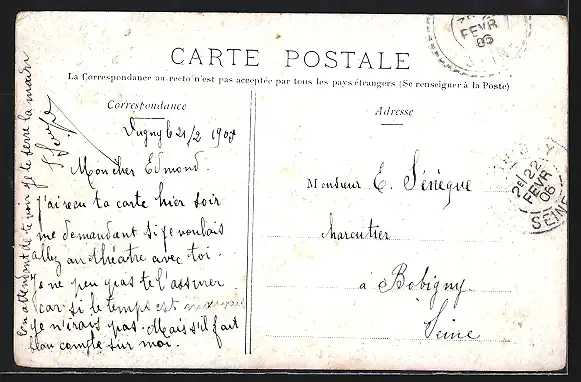 CARTE POSTALE
La Correspondance au recto n'est pas acceptée par tous les pays étrangers (Se renseigner à la Poste)
Correspondance
Dugny le 21/2 190
Mon cher Edmond.
J'ai reçu ta carte hier soir
me demandant si je voulais
allez au théâtre avec toi.
Je ne peu pas te l'assurer
car si le temps est mauvais
je n'irais pas. Mais s'il fait
beau compte sur moi.
En attendant de te voir je te serre la main
Adresse
Monsieur E. Sénèque
charcutier
à Bobigny
Seine
FEVR
06
SEINE
2E 22
FEVR
06
SEINE